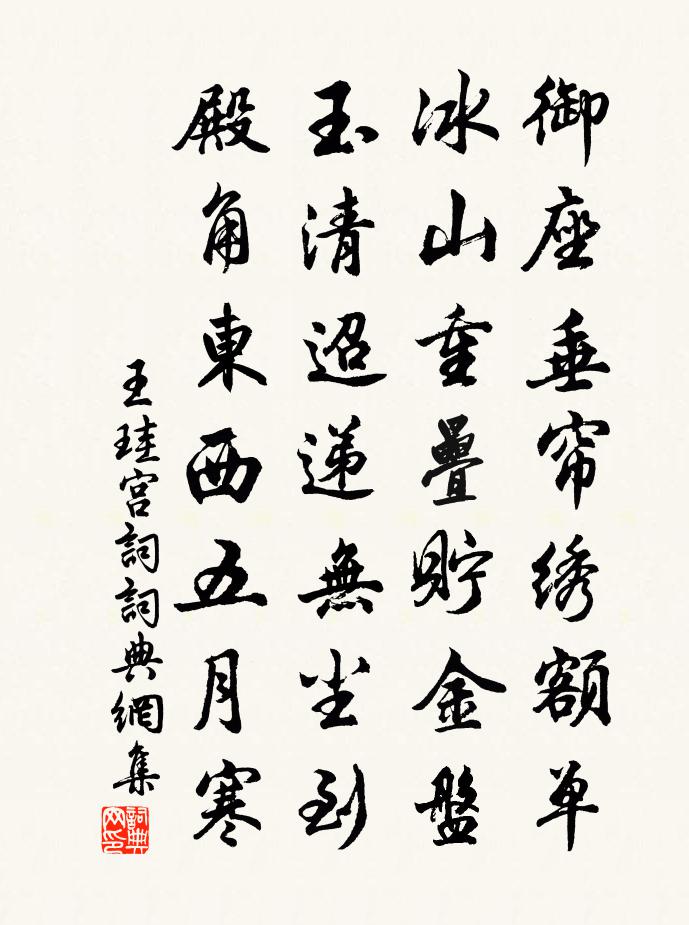 御座垂帘绣额单
冰山重疊貯金盤
玉清迢递無尘到
殿角東西五月寒
王珪宫詞詞典網集
詞典网印